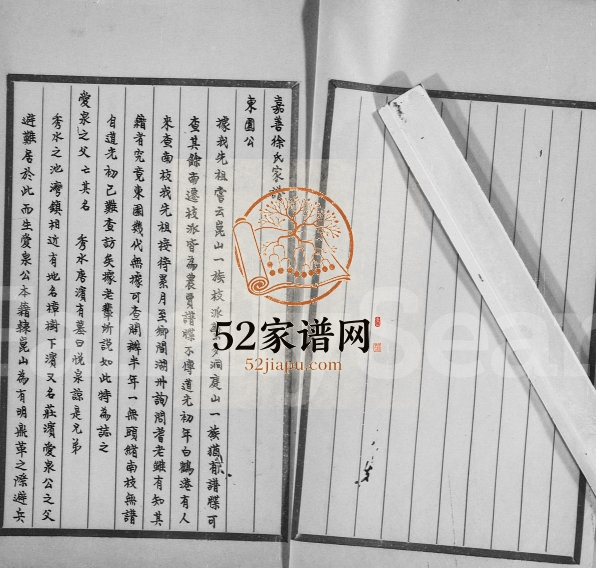 嘉善徐氏家譜
東園公
據我先祖嘗云崑山一族枝派洞庭山一族猶有譜牒可
查其餘南遷枝派皆為農賈譜牒不傳道光初年白鶴港有人
來查南枝我先祖接待累月至鄉間湖州詢問耆老雖有知其
籍者究竟東園幾代無據可查間辦半年一無頭緒南枝無譜
自道光初已難查訪矣據老輩所說如此特為誌之
愛泉之父亡其名 秀水唐濱有墓曰悅泉諒是兄弟
秀水之池灣鎮相近有地名樟樹下濱又名莊濱愛泉公之父
避難居於此而生愛泉公本籍隸崑山為有明鼎革之際避兵
52家谱网
52jiapu.com